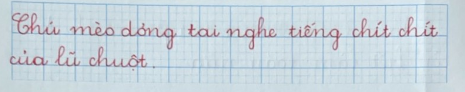 Chú mèo dỏng tai nghe tiếng chít chít
của lũ chuột.